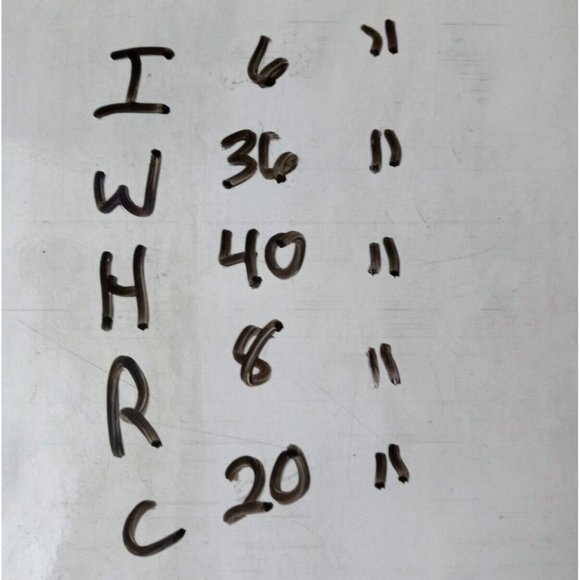 I 6 "
W 36 "
H 40 "
R 8 "
C 20 "